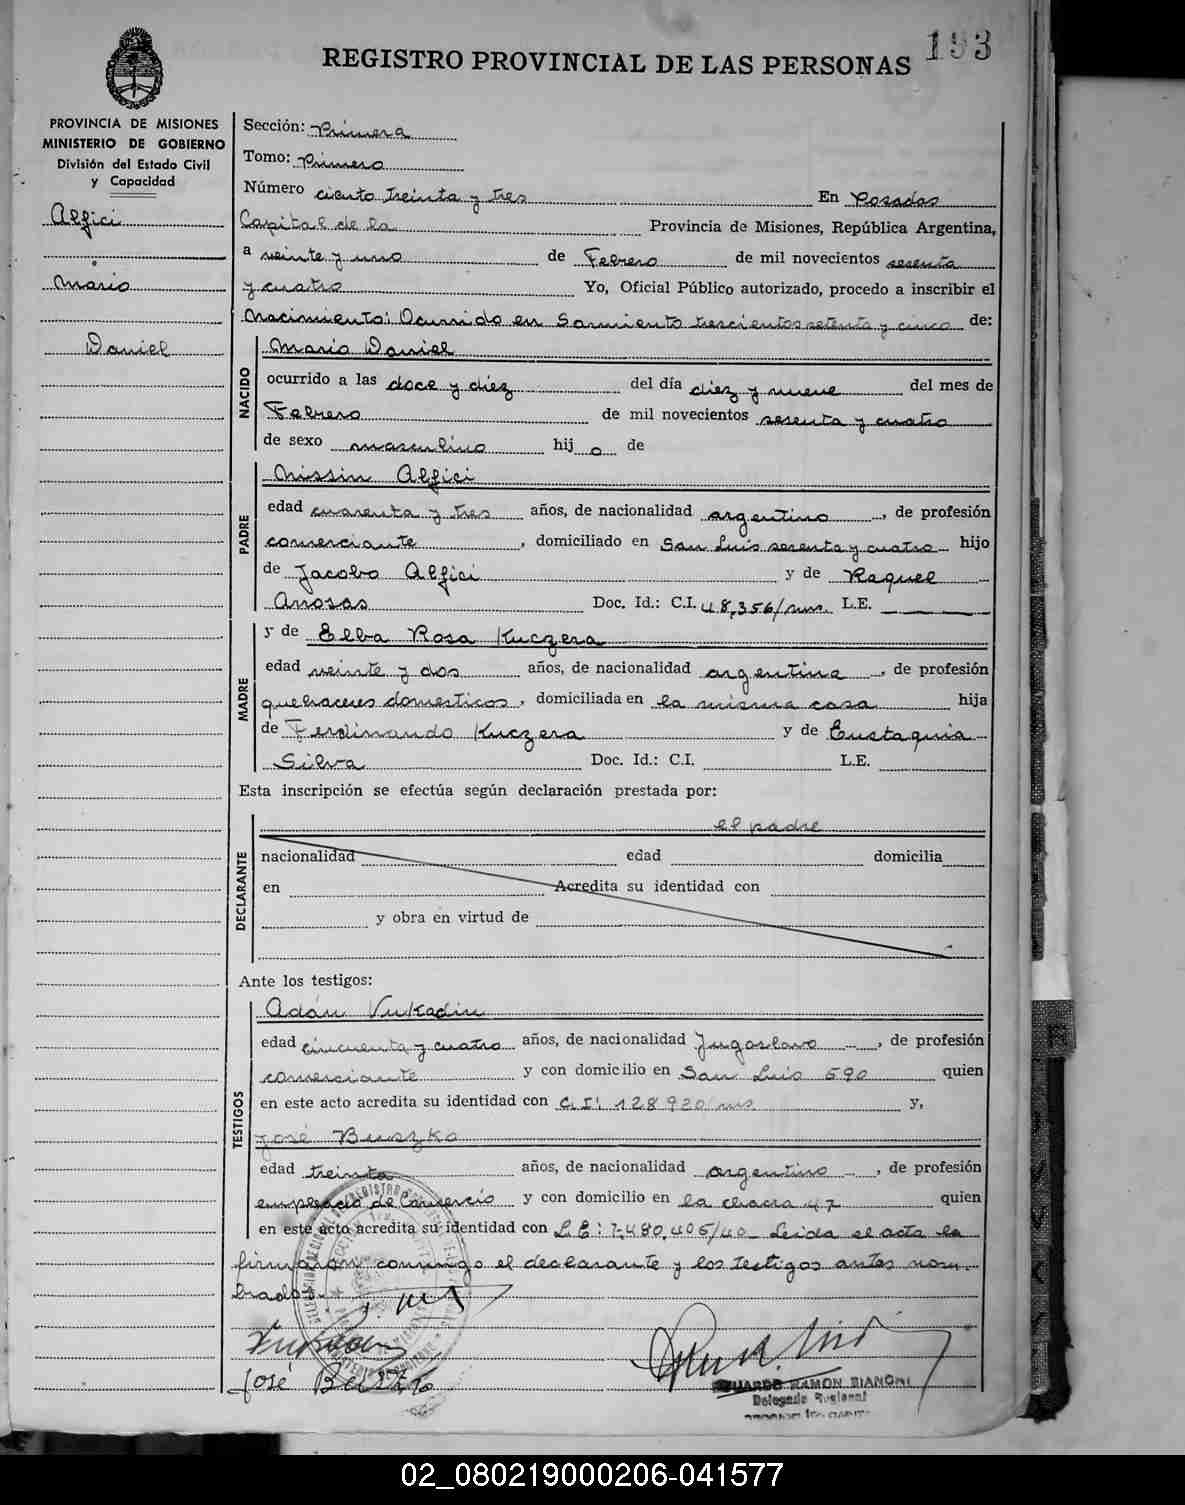 193
REGISTRO PROVINCIAL DE LAS PERSONAS
PROVINCIA DE MISIONES
MINISTERIO DE GOBIERNO
División del Estado Civil
y Capacidad
Alfici
Mario
Daniel
Sección: Primera
Tomo: Primero
Número ciento treinta y tres En Posadas
Capital de la Provincia de Misiones, República Argentina,
a veinte y uno de Febrero de mil novecientos sesenta
y cuatro Yo, Oficial Público autorizado, procedo a inscribir el
Nacimiento: Ocurrido en Sarmiento trescientos setenta y cinco de:
NACIDO
Mario Daniel
ocurrido a las doce y diez del día diez y nueve del mes de
Febrero de mil novecientos sesenta y cuatro
de sexo masculino hijo de
PADRE
Nissin Alfici
edad cuarenta y tres años, de nacionalidad argentino, de profesión
comerciante, domiciliado en San Luis sesenta y cuatro hijo
de Jacobo Alfici y de Raquel
Anosas Doc. Id.: C.I. 48,356/mns. L.E.
MADRE
y de Elba Rosa Kuczera
edad veinte y dos años, de nacionalidad argentina, de profesión
quehaceres domesticos, domiciliada en la misma casa hija
de Ferdinando Kuczera y de Eustaquia
Silva Doc. Id.: C.I. L.E.
Esta inscripción se efectúa según declaración prestada por:
DECLARANTE
el padre
nacionalidad edad domicilia
en Acredita su identidad con
y obra en virtud de
Ante los testigos:
TESTIGOS
Adán Vukadin
edad cincuenta y cuatro años, de nacionalidad Jugoslavo, de profesión
comerciante y con domicilio en San Luis 690 quien
en este acto acredita su identidad con C.I: 128920/mns y,
José Buszko
edad treinta años, de nacionalidad argentino, de profesión
empleado de Comercio y con domicilio en la chacra 47 quien
en este acto acredita su identidad con L.E: 7,480,405/40 Leida el acta la
firmaron conmigo el declarante y los testigos antes nom-
brados.
José Buszko
EDUARDO RAMON BIANCHI
Delegado Regional
02_080219000206-041577